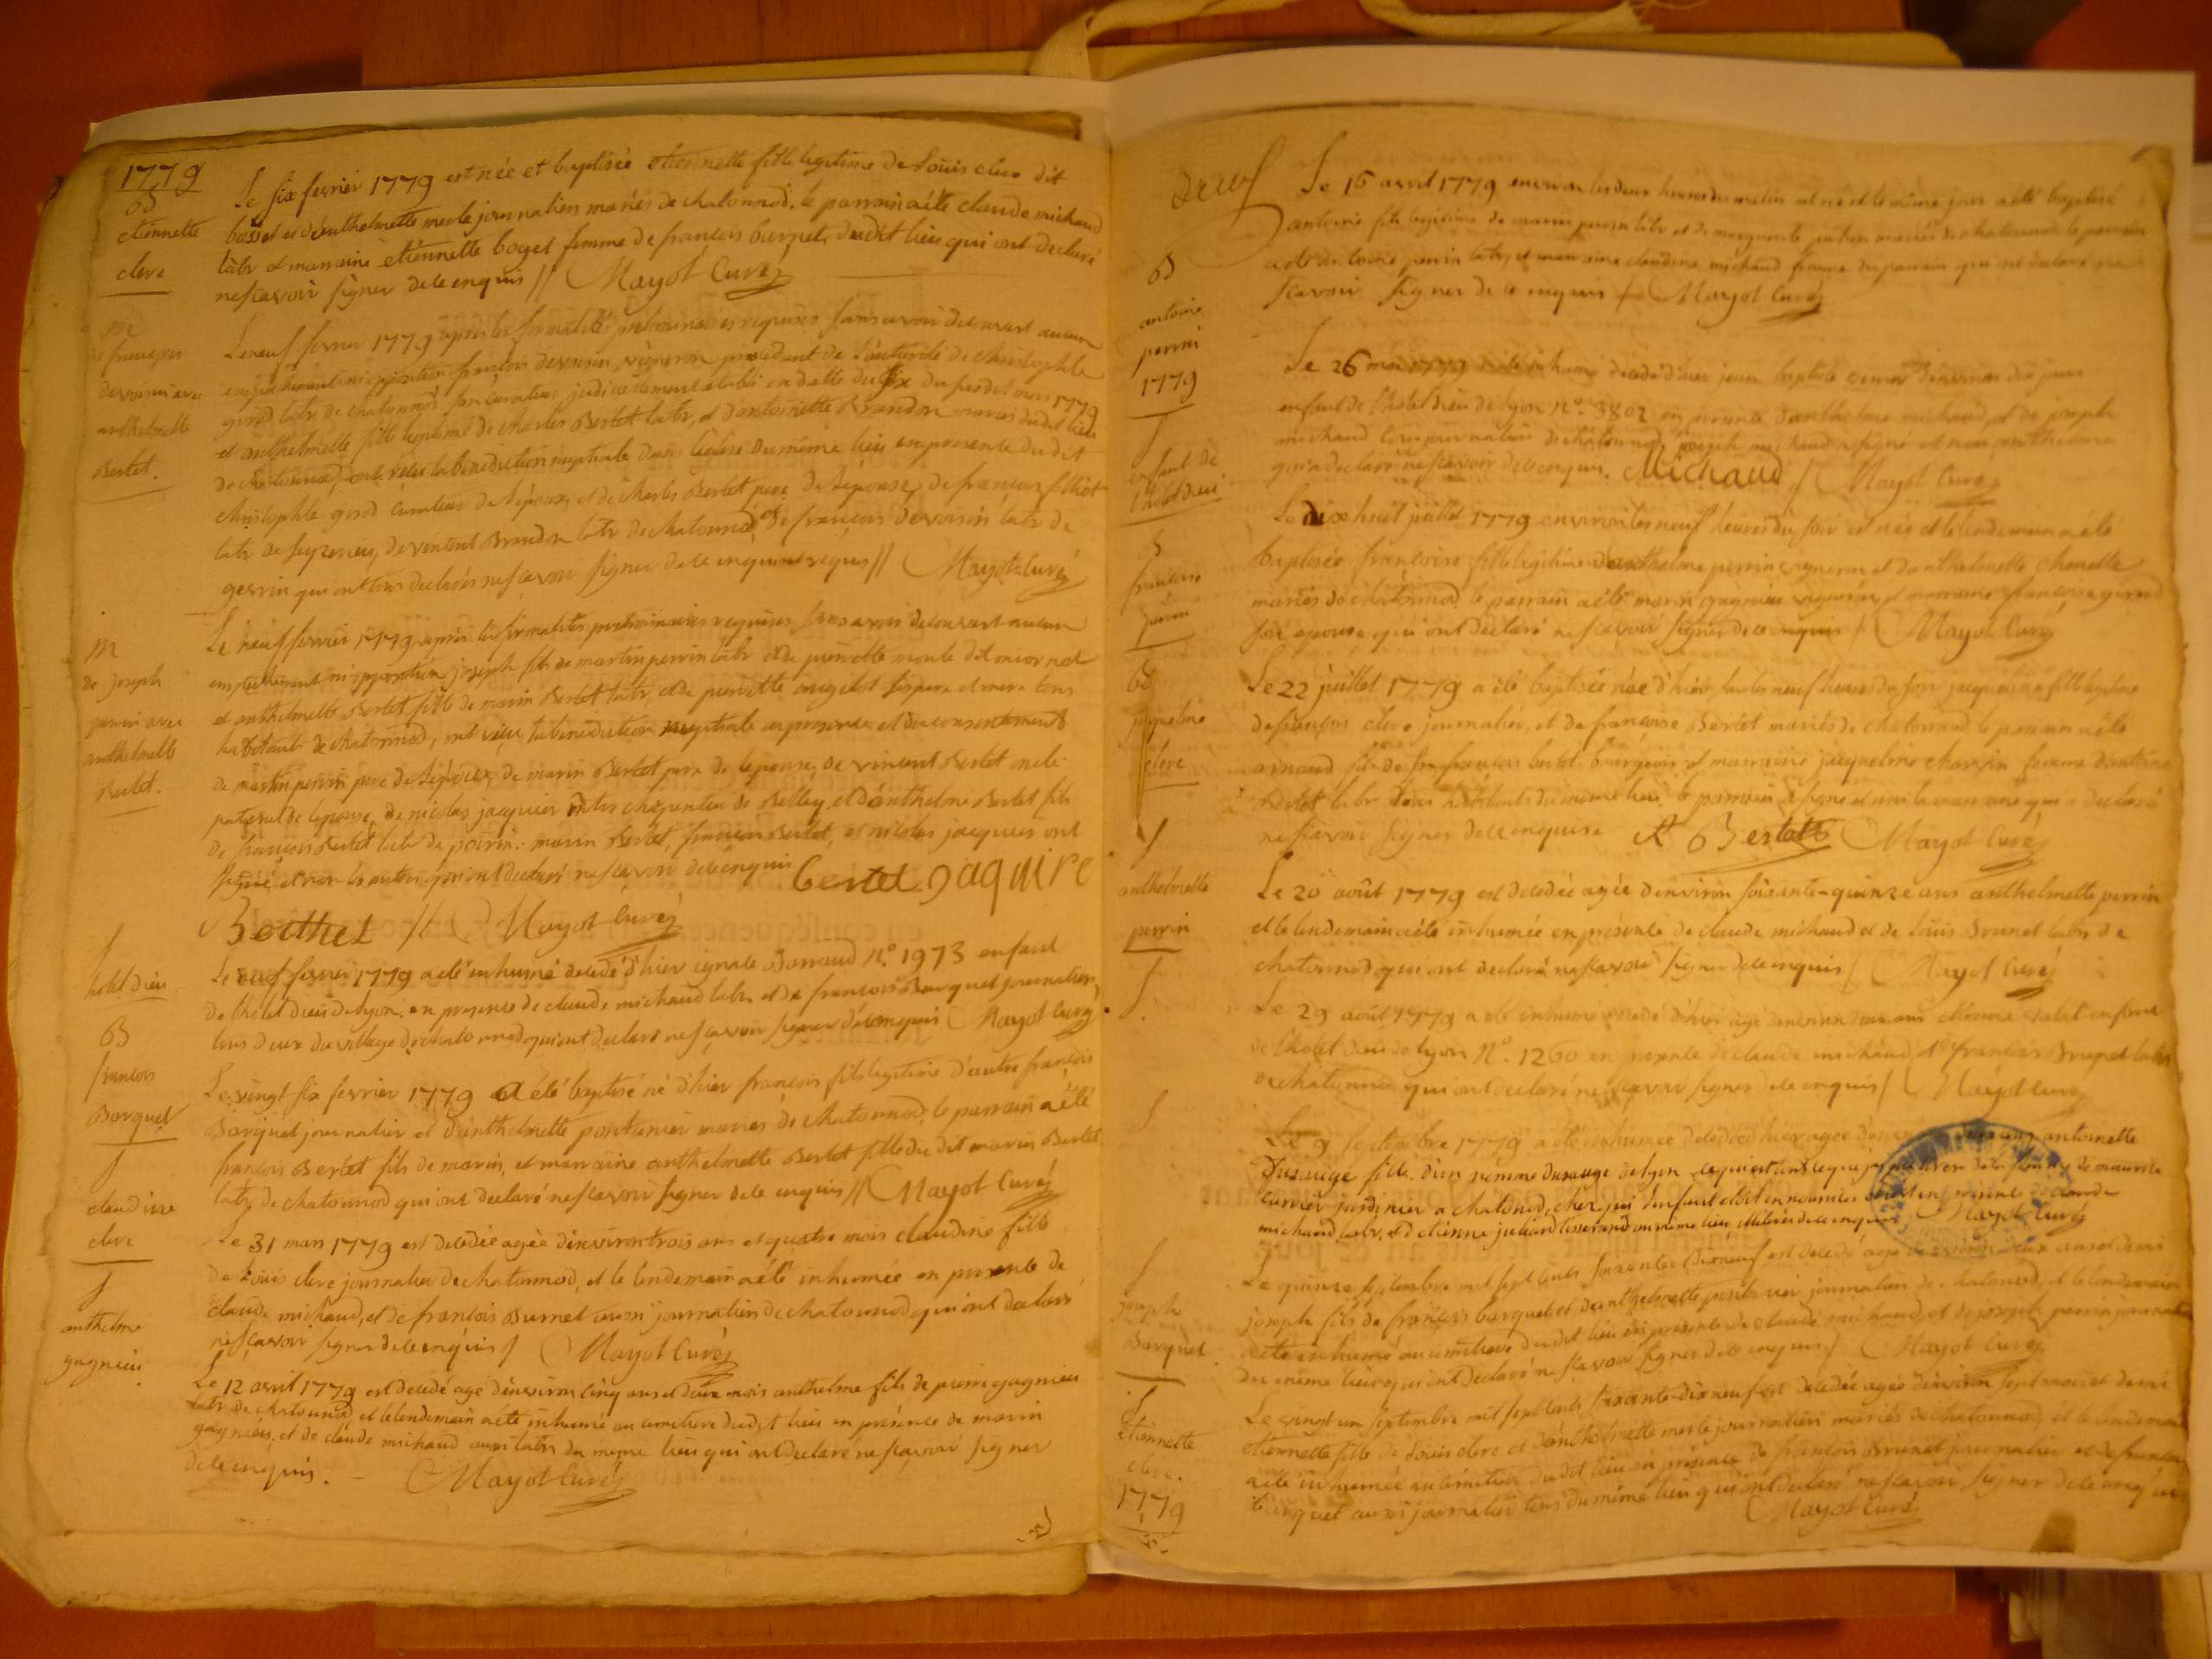 1779
B
etiennette
clerc
Le six fevrier 1779 est née et baptisée etiennette fille legitime de Louis clerc dit
basset et d'anthelmette merle journaliers mariés de chatonnod. le parrain a été claude michaud
labr et marraine etiennette boget femme de francois burnet, dudit lieu qui ont declaré
ne scavoir signer de ce enquis // Mayot Curé
M
de françois
devoisin avec
anthelmette
Bertet.
Le neuf fevrier 1779 apres les formalités préliminaires requises sans avoir decouvert aucun
empechement ni opposition françois devoisin, vigneron procedant de l'autorité de christophle
girod labr de chatonnod son curateur judiciellement etabli en datte du six du susdit mois 1779
et anthelmette fille legitime de charles Bertet labr, et d'antoinette Brandon mariés dudit lieu
de chatonnod, ont reçu la benediction nuptiale dans l'eglise du même lieu en presence dudit
christophle girod curateur de l'epoux, et de charles Bertet pere de l'epouse, de francois
labr de seyzerieu, de vincent Brandon labr de chatonnod, et de françois devoisin labr de
qui ont tous declarés ne scavoir signer de ce enquis et requis // Mayot Curé
M
de joseph
perrin avec
anthelmette
Bertet.
Le neuf fevrier 1779, après les formalités préliminaires requises, sans avoir decouvert aucun
empechement ni opposition joseph fils de martin perrin labr et de pierrette
et anthelmette Bertet fille de marin Bertet labr, et de pierrette ses pere et mere tous
habitants de chatonnod, ont reçu la benediction nuptiale en presence et du consentement
de martin perrin pere de l'epoux, de marin Bertet pere de l'epouse, de vincent Bertet oncle
paternel de l'epouse, de nicolas jacquier maitre charpentier de Belley, et d'anthelme Bertet fils
de françois Bertet labr de poirin. marin Bertet, francois Bertet, et nicolas jacquier ont
signé, et non les autres qui ont declaré ne scavoir de ce enquis Bertet jaquire
Berthet // Mayot Curé
S
hotel dieu
Le neuf fevrier 1779 a été inhumé decedé d'hier Bonnaud N.° 1973 enfant
de l'hôtel dieu de Lyon, en presence de claude michaud labr. et de francois Burquet journalier,
tous deux du village de chatonnod qui ont declaré ne scavoir signer de ce enquis Mayot Curé
B
francois
Borquet
Le vingt six fevrier 1779 a été baptisé né d'hier françois fils legitime d'autre francois
Borquet journalier et d'anthelmette pontanier mariés de chatonnod, le parrain a été
francois Bertet fils de marin, et marraine anthelmette Bertet fille du dit marin Bertet
labr, de chatonnod qui ont declaré ne scavoir signer de ce enquis // Mayot Curé
S
claudine
clerc
Le 31 mars 1779 est decedée agée d'environ trois ans et quatre mois claudine fille
de Louis clerc journalier de chatonnod, et le lendemain a été inhumée en presence de
claude michaud, et de francois Burnet aussi journalier de chatonnod qui ont declaré
ne scavoir signer de ce enquis / Mayot Curé
S
anthelme
gagnieu.
Le 12 avril 1779 est decedé agé d'environ cinq ans et deux mois anthelme fils de pierre gagnieu
labr de chatonnod et le lendemain a été inhumé au cimetiere dudit lieu en présence de marin
gagnieu, et de claude michaud aussi labr du meme lieu qui ont declaré ne scavoir signer
de ce enquis. Mayot Curé
Deux
B
antoine
perrin
1779
Le 16 avril 1779 environ les deux heures du matin est né et le même jour a été baptisé
antoine fils legitime de marin perrin labr et de marguerite mariés de chatonnod le parrain
a été antoine perrin labr, et marraine claudine michaud femme du parrain qui ont declaré ne
scavoir signer de ce enquis / Mayot Curé
S
enfant de
l'hotel dieu
Le 26 mai 1779 a été inhumé decedé d'hier jean baptiste d'environ dix jours
enfant de l'hotel dieu de lyon N.° 3802 en presence d'anthelme michaud, et de joseph
michaud tous journaliers de chatonnod, joseph michaud a signé et non anthelme
qui a declaré ne scavoir de ce enquis. Michaud / Mayot Curé
B
francoise
perrin
Le dix huit juillet 1779 environ les neuf heures du soir est née et le lendemain a été
baptisée françoise fille legitime d'anthelme perrin vigneron et d'anthelmette
mariés de chatonnod. le parrain a été marin gagnieu vigneron, et marraine françoise girod
son epouse qui ont declaré ne scavoir signer de ce enquis / Mayot Curé
B
jaquelme
clerc
Le 22 juillet 1779 a été baptisée née d'hier sur les neuf heures du soir jacqueline fille legitime
de françois clerc journalier, et de françoise Bertet mariés de chatonnod le parrain a été
arnaud fils de françois bertet bourgeois et marraine jacqueline femme d'antoine
Bertet labr tous habitants du même lieu, le parrain a signé et non la marraine qui a declaré
ne scavoir signer de ce enquise A Bertet Mayot Curé
S
anthelmette
perrin
Le 20 août 1779 est decedée agée d'environ soixante-quinze ans anthelmette perrin
et le lendemain a été inhumée en présence de claude michaud et de Louis Brunet labrs de
chatonnod qui ont declaré ne scavoir signer de ce enquis / Mayot Curé
S.
Le 29 août 1779 a été inhumé decedé d'hier agé d'environ deux ans etienne enfant
de l'hotel dieu de lyon N°. 1260 en presence de claude michaud, et françois Brunet labrs
de chatonnod qui ont declaré ne scavoir signer de ce enquis / Mayot Curé
S
Le 9 septembre 1779 a été inhumée decedée d'hier agée antoinette
Dusauge fille d'un nomme dusauge de lyon de maurice
currier jardinier a chatonnod, chez qui l'enfant etoit en nourrice en presence de claude
michaud labr, et d'etienne juliard tisserand du meme lieu illiterés de ce enquis Mayot Curé
S
joseph
Borquet
Le quinze septembre mil sept cents soixante dix neuf est decedé agé d'environ deux ans et demi
joseph fils de françois burquet et d'anthelmette pontanier journaliers de chatonnod, et le lendemain
a été inhumé au cimetiere dudit lieu en presence de claude michaud, et de joseph perrin journaliers
du meme lieu qui ont declaré ne scavoir signer de ce enquis / Mayot Curé
S
etiennette
clerc.
1779
Le vingt un septembre mil sept cents soixante-dix neuf est decedée agée d'environ sept mois et demi
etiennette fille de Louis clerc et d'anthelmette merle journaliers mariés de chatonnod, et le lendemain
a été inhumée au cimetiere dudit lieu en présence de françois Brunet journalier et de francois
burquet aussi journalier tous du même lieu qui ont declaré ne scavoir signer de ce enquis
Mayot Curé